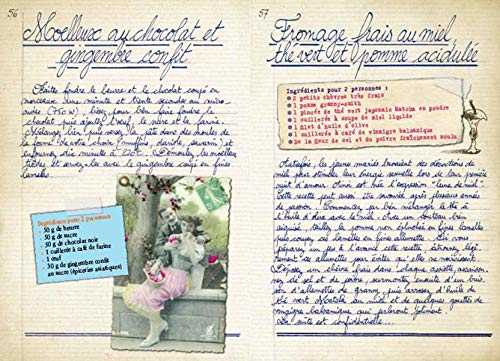 56
Moelleux au chocolat et
gingembre confit
Faites fondre le beurre et le chocolat coupé en
morceaux une minute et trente secondes au micro-
ondes
chocolat puis ajoutez l'oeuf, le sucre et la farine.
Mélangez bien puis versez la pâte dans des moules de
la forme de votre choix (muffins, darioles, savarin) et
enfournez dix minutes à Démoulez les moelleux
tièdes et servez-les avec le gingembre confit en fines
lamelles.
Ingrédients pour 2 personnes
50 g de beurre
50 g de sucre
50 g de chocolat noir
1 cuillerée à café de farine
1 œuf
30 g de gingembre confit
au sucre (épiceries asiatiques)
57
Fromage frais au miel,
thé vert et pomme acidulée
Ingrédients pour 2 personnes :
2 petits chèvres très frais
1 pomme granny-smith
1 pincée de thé vert japonais Matcha en poudre
1 cuillerée à soupe de miel liquide
1 filet d'huile d'olive
1 cuillerée à café de vinaigre balsamique
de la fleur de sel et du poivre fraîchement moulu
Autrefois, les jeunes mariés buvaient des décoctions de
miel pour stimuler leur énergie sexuelle lors de leur première
nuit d'amour. Ainsi est née l'expression "lune de miel".
Cette recette peut aussi être savourée après plusieurs années
de passion. Commencez par bien mélanger le thé et
l'huile d'olive avec le miel. Avec un couteau bien
aiguisé, taillez la pomme non épluchée en fines lamelles
puis coupez ces lamelles en fines allumettes. Si vous
préparez un peu à l'avance cette recette, citronnez légè-
rement ces allumettes pour éviter qu'elles ne noircissent.
Déposez un chèvre frais dans chaque assiette, assaison-
nez de sel et de poivre, surmontez ensuite d'un buis-
son d'allumettes de granny, puis arrosez d'huile de
thé vert Matcha au miel et de quelques gouttes de
vinaigre balsamique qui perleront joliment.
La suite est confidentielle...